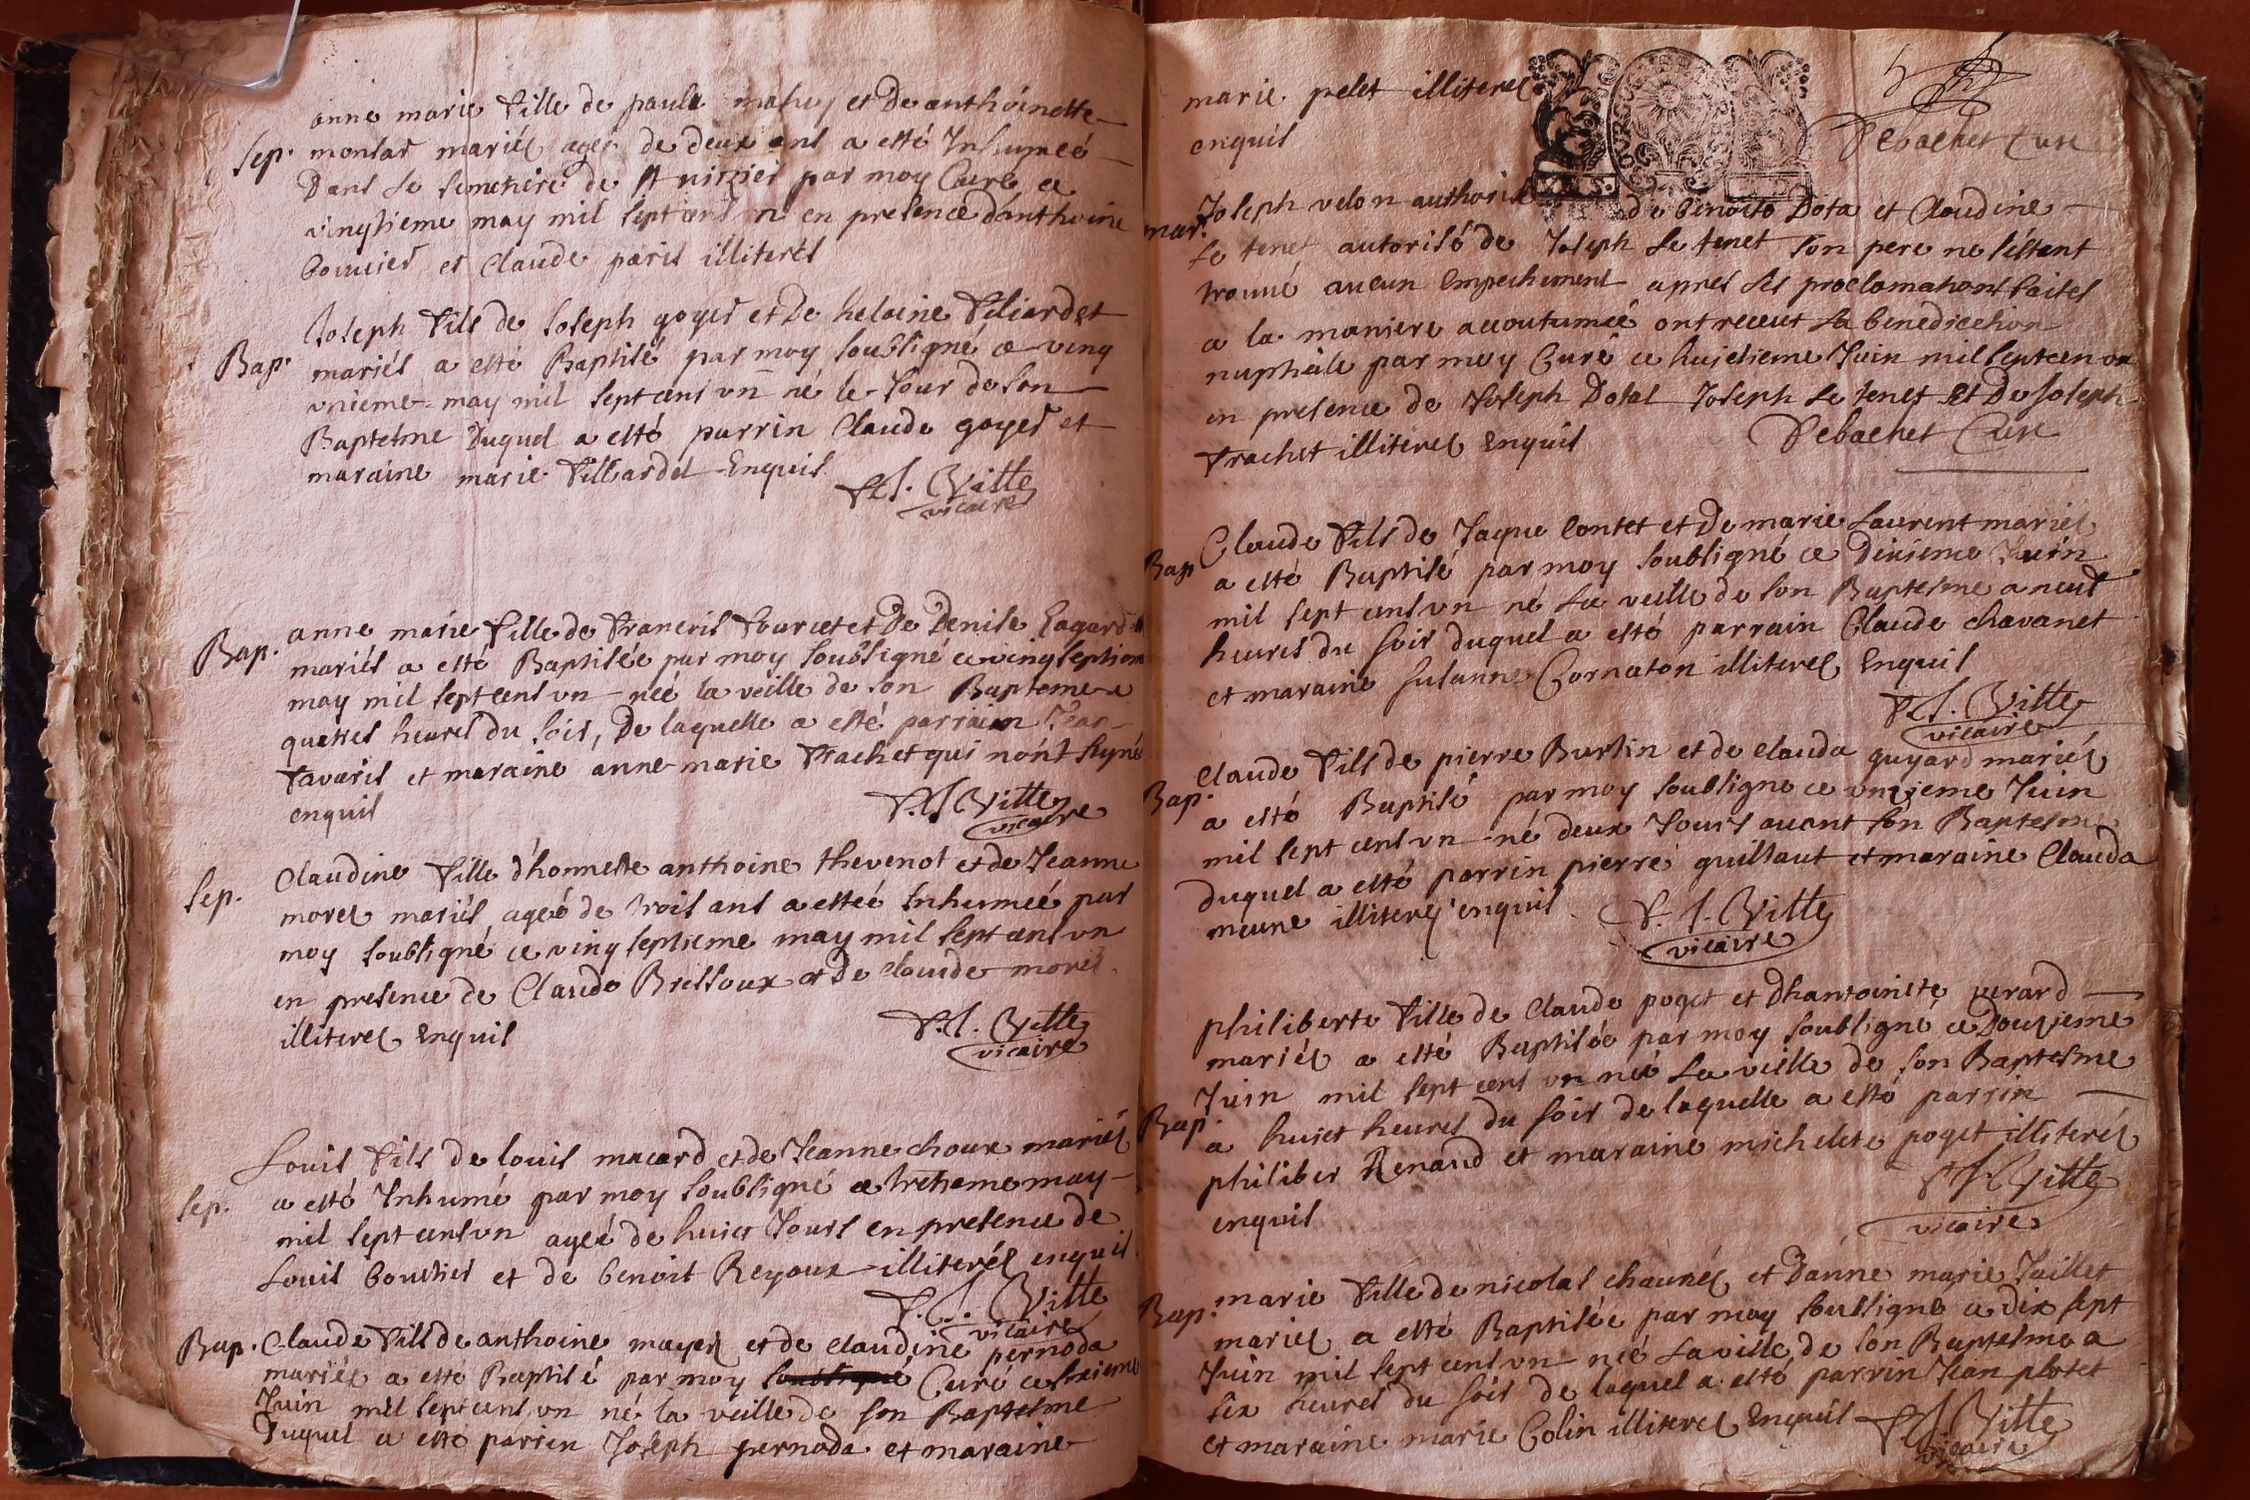 anne marie fille de paule mahuy et de anthoinette
Sep. montar mariés ageé de deux ans a esté Inhumeé
Dans le semetiere de St nizier par moy Curé ce
vingtieme may mil sept cens un en presence danthoine
bouvier et Claude paris illiterés
Joseph fils de Joseph goyer et de helaine filiardet
Bap. mariés a esté Baptisé par moy soubsigné ce ving
unieme may mil sept cens un né le Jour de son
Baptesme Duquel a esté parrin Claude goyer et
maraine marie filliardet Enquis
F.S. Vitte
vicaire
anne marie fille de francois fourcet et De Denise
Bap. mariés a esté Baptisée par moy soubsigné ce vingseptiem
may mil sept cens un neé la veille de son Bapteme a
quatres heures du soir, De laquelle a esté parriain Jean
favaris et maraine anne marie frachet qui nont signé
enquis
F.S. Vitte
vicaire
Claudine fille d'honneste anthoine thevenot et de Jeanne
Sep. morel mariés ageé de trois ans a esteé Inhumeé par
moy soubsigné ce ving septieme may mil sept cens un
en presence de Claude Bressoux et De Claude morel
illiteres Enquis
F.S. Vitte
vicaire
Louis fils de louis macard et de Jeanne choux mariés
Sep. a esté Inhumé par moy soubsigné ce tretieme may
mil sept cens un ageé de huict Jours en presence de
Louis bouvier et de benoit Reyoux illiterés enquis
F.S. Vitte
vicaire
Bap. Claude fils de anthoine mayer et de claudine pernoda
mariés a esté Baptisé par moy soubsigné Curé ce sixieme
Juin mil sept cens un né la veille de son Baptesme
Duquel a esté parrin Joseph pernoda et maraine
marie pelet illiteres
enquis
Debachet Curé
mar. Joseph velon authorisé de benoite Dota et Claudine
le tenet autorisé de Joseph le tenet son pere ne s'estant
trouvé aucun Empechement apres les proclamations faites
a la maniere accoutumeé ont receut la benediction
nuphiale par moy Curé ce huictieme Juin mil sept cen un
en presence de Joseph Dotal Joseph le tenet Et De Joseph
frachet illiteres Enquis
Debachet Curé
Claude fils de Jaque Contet et De marie Laurent mariés
Bap a esté Baptisé par moy soubsigné ce Dixieme Juin
mil sept cens un né La veille de son Baptesme a neuf
heures du soir duquel a esté parrain Claude chavanet
et maraine susanne Cornaton illiteres Enquis
F.S. Vitte
vicaire
Claude fils de pierre Burtin et de clauda guyard mariés
Bap. a esté Baptisé par moy soubsigné ce unzieme Juin
mil sept cens un né deux Jours avant son Baptesme
duquel a esté parrin pierre guillaut et maraine Clauda
meune illiteres enquis
F.S. Vitte
vicaire
philiberte fille de Claude poget et Dhantoinete verard
mariés a esté Baptisée par moy soubsigné ce Douzieme
Juin mil sept cens un neé La veille de son Baptesme
Bap. a huict heures du soir de laquelle a esté parrin
philiber Renaud et maraine michelete poget illiterés
enquis
F.S. Vitte
vicaire
marie fille de nicolas chaunel et Danne marie Juillet
Bap. mariés a esté Baptisée par moy soubsigné ce dix sept
Juin mil sept cens un neé La veille de son Baptesme a
six heures du soir de laquel a esté parrin Jean plotet
et maraine marie Colin illiteres Enquis
F.S. Vitte
vicaire